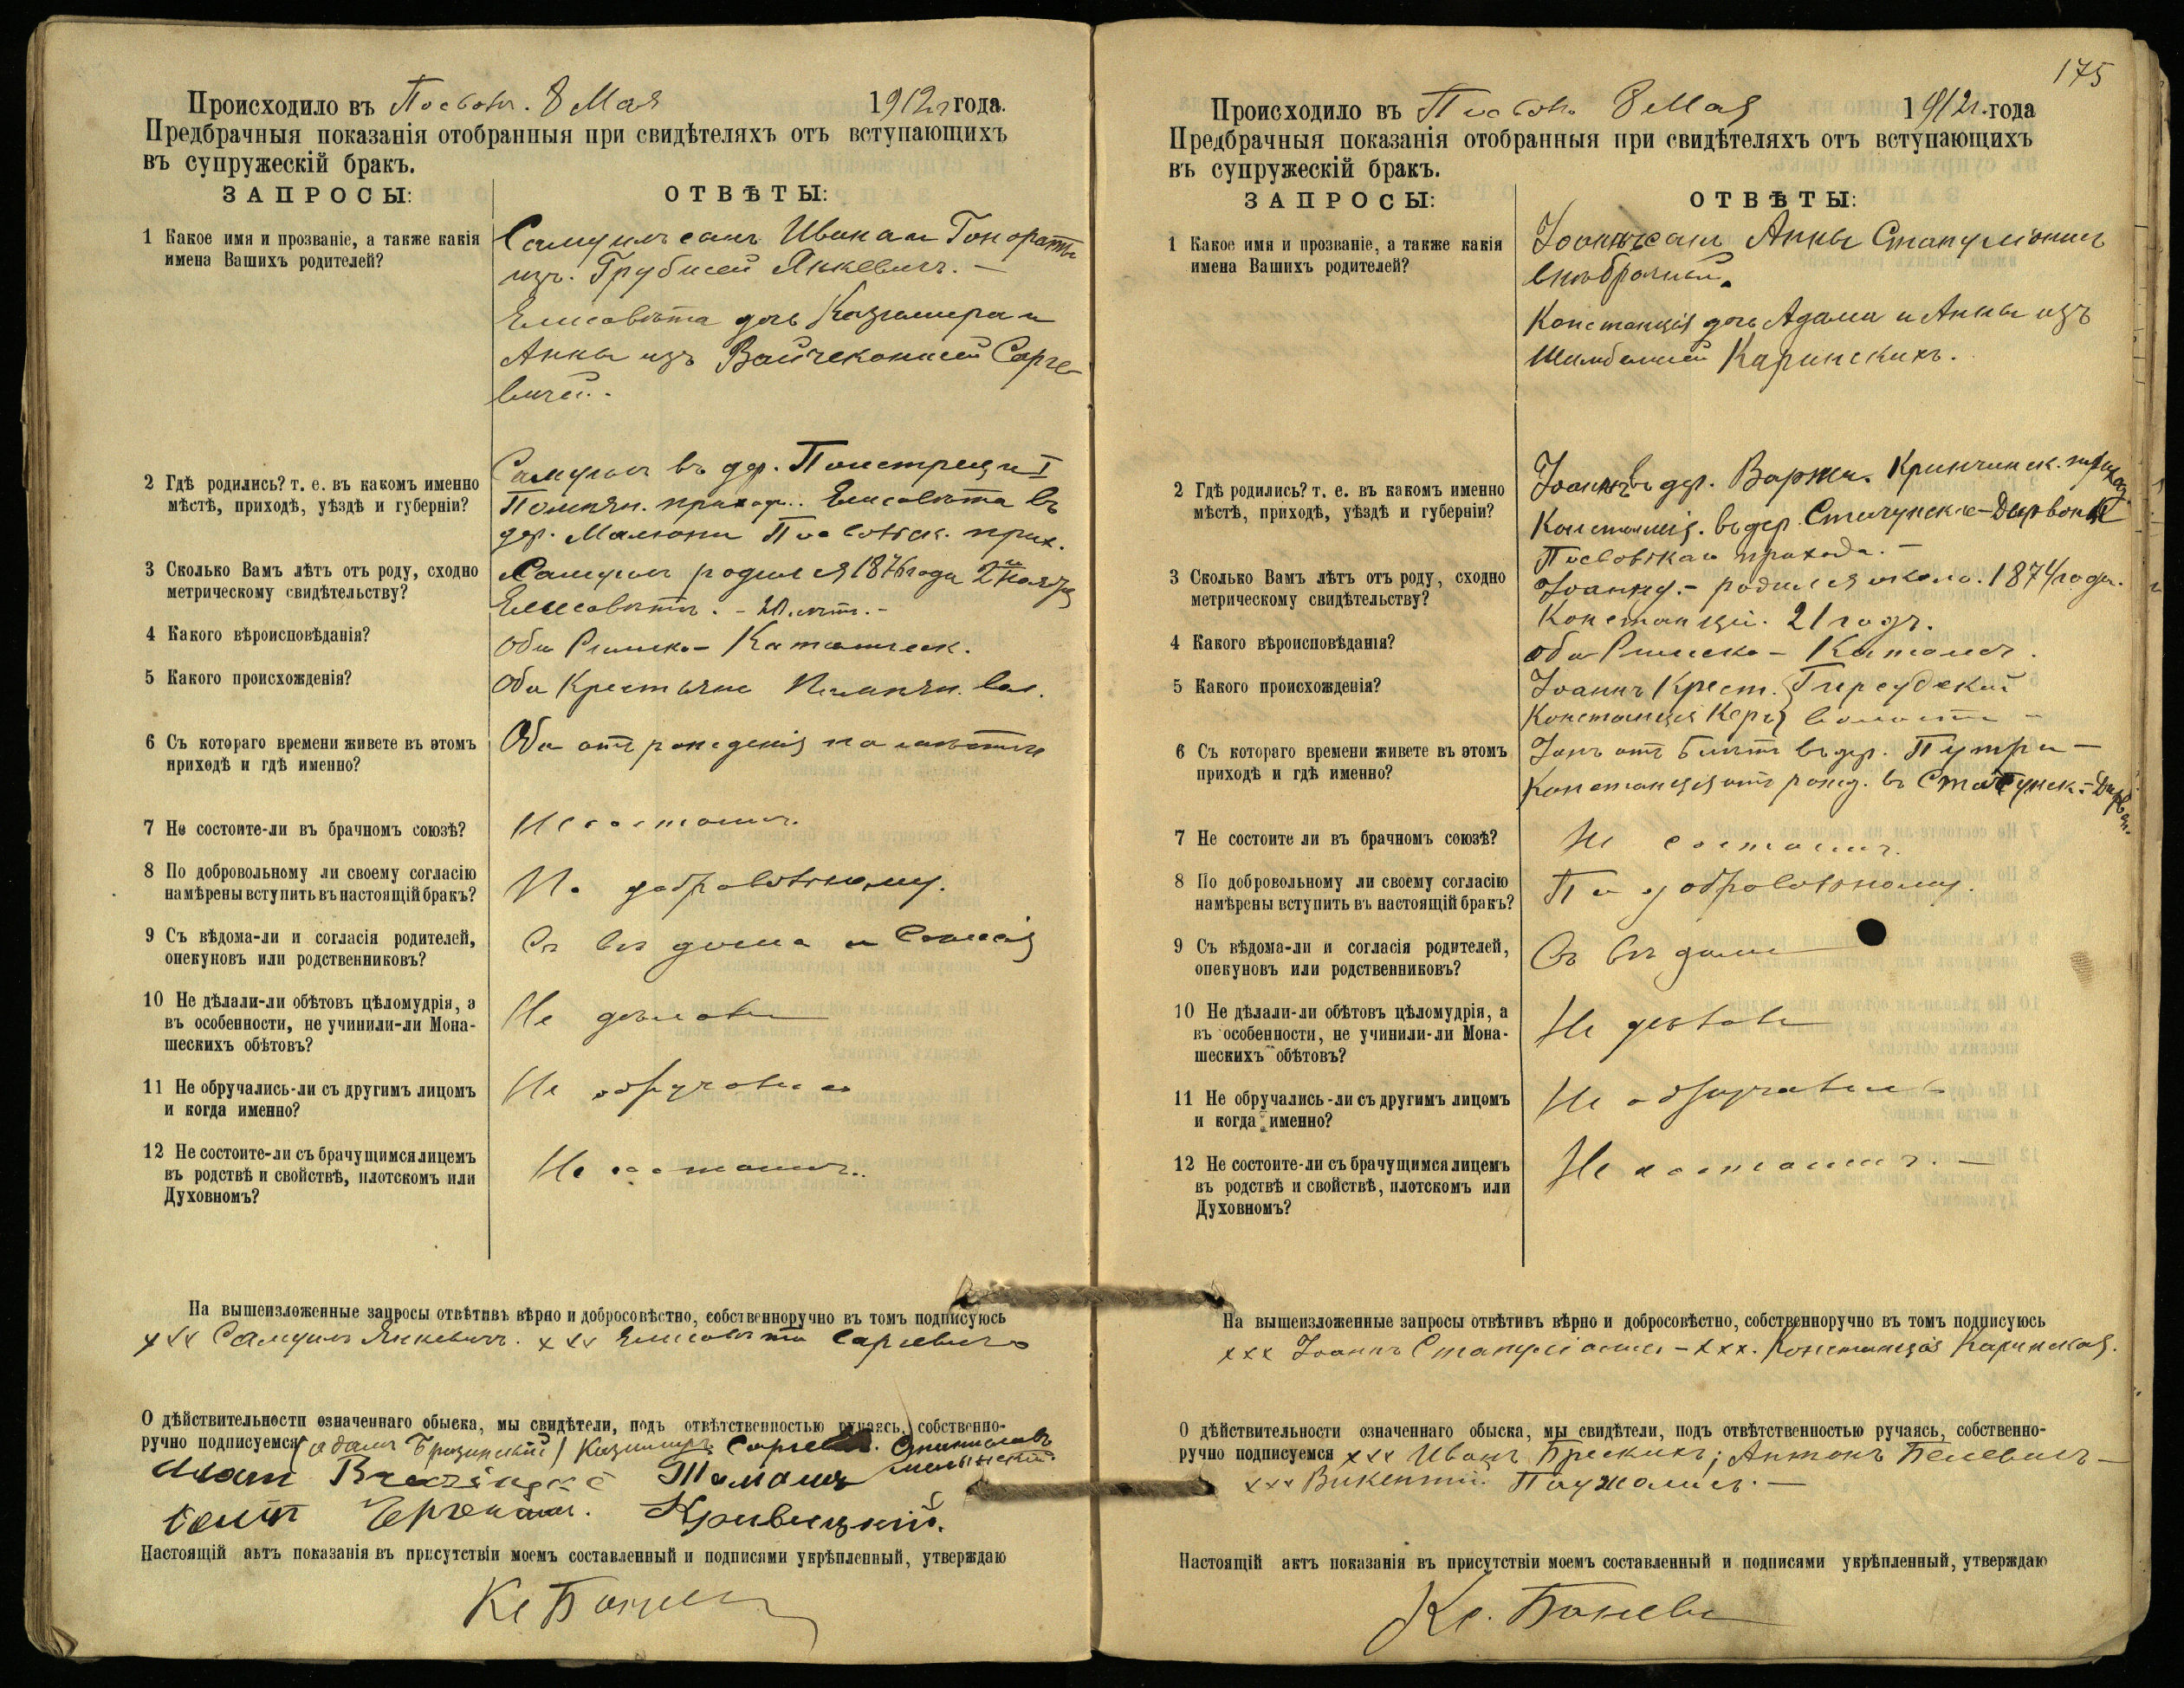 Происходило въ Посволь. 8 Мая 1912 г года.
Предбрачныя показанія отобранныя при свидѣтеляхъ отъ вступающихъ
въ супружескій бракъ.
ЗАПРОСЫ: ОТВѢТЫ:
1 Какое имя и прозваніе, а также какія
имена Вашихъ родителей?
Самуилъ сынъ Ивана и Гонораты
изъ Грубисей Янкевичъ. —
Елисавѣта дочь Казимира и
Анны изъ Вайчеконисей Сарге-
вичей.
2 Гдѣ родились? т. е. въ какомъ именно
мѣстѣ, приходѣ, уѣздѣ и губерніи?
Самуилъ въ дер. Поистреци I
приход. Елисавѣта въ
дер. Малюни прих.
3 Сколько Вамъ лѣтъ отъ роду, сходно
метрическому свидѣтельству?
Самуилъ родился 1876 года 2
Елисавѣтъ. — 20 лѣтъ. —
4 Какого вѣроисповѣданія?
Оба Римско-Католическ.
5 Какого происхожденія?
Оба Крестьяне вол.
6 Съ котораго времени живете въ этомъ
приходѣ и гдѣ именно?
Оба отъ рожденія на
7 Не состоите-ли въ брачномъ союзѣ?
Не состоимъ.
8 По добровольному ли своему согласію
намѣрены вступить въ настоящій бракъ?
По добровольному.
9 Съ вѣдома-ли и согласія родителей,
опекуновъ или родственниковъ?
Съ вѣдома и
10 Не дѣлали-ли обѣтовъ цѣломудрія, а
въ особенности, не учинили-ли Мона-
шескихъ обѣтовъ?
Не дѣлали
11 Не обручались-ли съ другимъ лицомъ
и когда именно?
Не обручались
12 Не состоите-ли съ брачущимся лицемъ
въ родствѣ и свойствѣ, плотскомъ или
Духовномъ?
Не состоимъ.
На вышеизложенные запросы отвѣтивъ вѣрно и добросовѣстно, собственноручно въ томъ подписуюсь
xxx Самуилъ Янкевичъ. xxx Елисавѣта Саргевичъ
О дѣйствительности означеннаго обыска, мы свидѣтели, подъ отвѣтственностью ручаясь, собственно-
ручно подписуемся (Адамъ Бразинскій) Казимиръ Станиславъ
Томашъ
Кривицкій.
Настоящій актъ показанія въ присутствіи моемъ составленный и подписями укрѣпленный, утверждаю
175
Происходило въ Посволь 8 Мая 1912 г. года
Предбрачныя показанія отобранныя при свидѣтеляхъ отъ вступающихъ
въ супружескій бракъ.
ЗАПРОСЫ: ОТВѢТЫ:
1 Какое имя и прозваніе, а также какія
имена Вашихъ родителей?
Іоаннъ сынъ Анны Стапуліонисъ
внѣбрачный.
Констанція дочь Адама и Анны изъ
Каринскихъ.
2 Гдѣ родились? т. е. въ какомъ именно
мѣстѣ, приходѣ, уѣздѣ и губерніи?
Іоаннъ въ дер. Варжи. Кринчинск. приход.
Констанція. въ дер.
прихода. —
3 Сколько Вамъ лѣтъ отъ роду, сходно
метрическому свидѣтельству?
Іоаннъ. — родился около. 1874 года.
Констанціи. 21 годъ.
4 Какого вѣроисповѣданія?
Оба Римско-Католич.
5 Какого происхожденія?
Іоаннъ Крест. Гирсудской
Констанція Крест. волости —
6 Съ котораго времени живете въ этомъ
приходѣ и гдѣ именно?
Іоаннъ отъ 5 лѣтъ въ дер. Путри —
Констанція отъ рожд. въ
7 Не состоите ли въ брачномъ союзѣ?
Не состоимъ.
8 По добровольному ли своему согласію
намѣрены вступить въ настоящій бракъ?
По добровольному.
9 Съ вѣдома-ли и согласія родителей,
опекуновъ или родственниковъ?
Съ вѣдома
10 Не дѣлали-ли обѣтовъ цѣломудрія, а
въ особенности, не учинили-ли Мона-
шескихъ обѣтовъ?
Не дѣлали
11 Не обручались-ли съ другимъ лицомъ
и когда именно?
Не обручались
12 Не состоите-ли съ брачущимся лицемъ
въ родствѣ и свойствѣ, плотскомъ или
Духовномъ?
Не состоимъ. —
На вышеизложенные запросы отвѣтивъ вѣрно и добросовѣстно, собственноручно въ томъ подписуюсь
xxx Іоаннъ Стапуліонисъ — xxx. Констанція Каринская.
О дѣйствительности означеннаго обыска, мы свидѣтели, подъ отвѣтственностью ручаясь, собственно-
ручно подписуемся xxx Иванъ Антонъ —
xxx Викентій —
Настоящій актъ показанія въ присутствіи моемъ составленный и подписями укрѣпленный, утверждаю